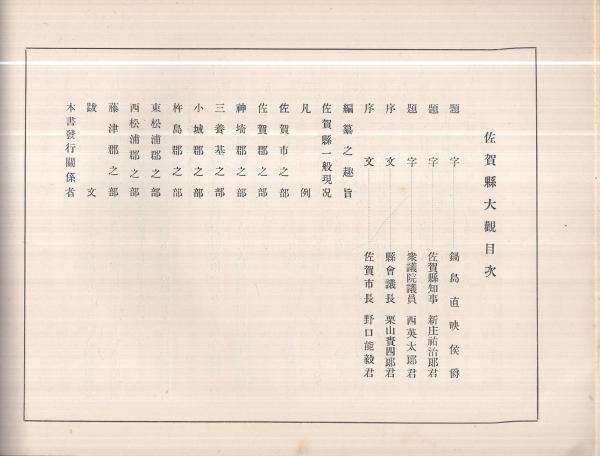 佐賀縣大觀目次
題字 鍋島直映侯爵
題字 佐賀縣知事 新庄祐治郎君
題字 衆議院議員 西英太郎君
序文 縣會議長 栗山賚四郎君
序文 佐賀市長 野口能毅君
編纂之趣旨
佐賀縣一般現况
凡例
佐賀市之部
佐賀郡之部
神埼郡之部
三養基之部
小城郡之部
杵島郡之部
東松浦郡之部
西松浦郡之部
藤津郡之部
跋文
本書發行關係者